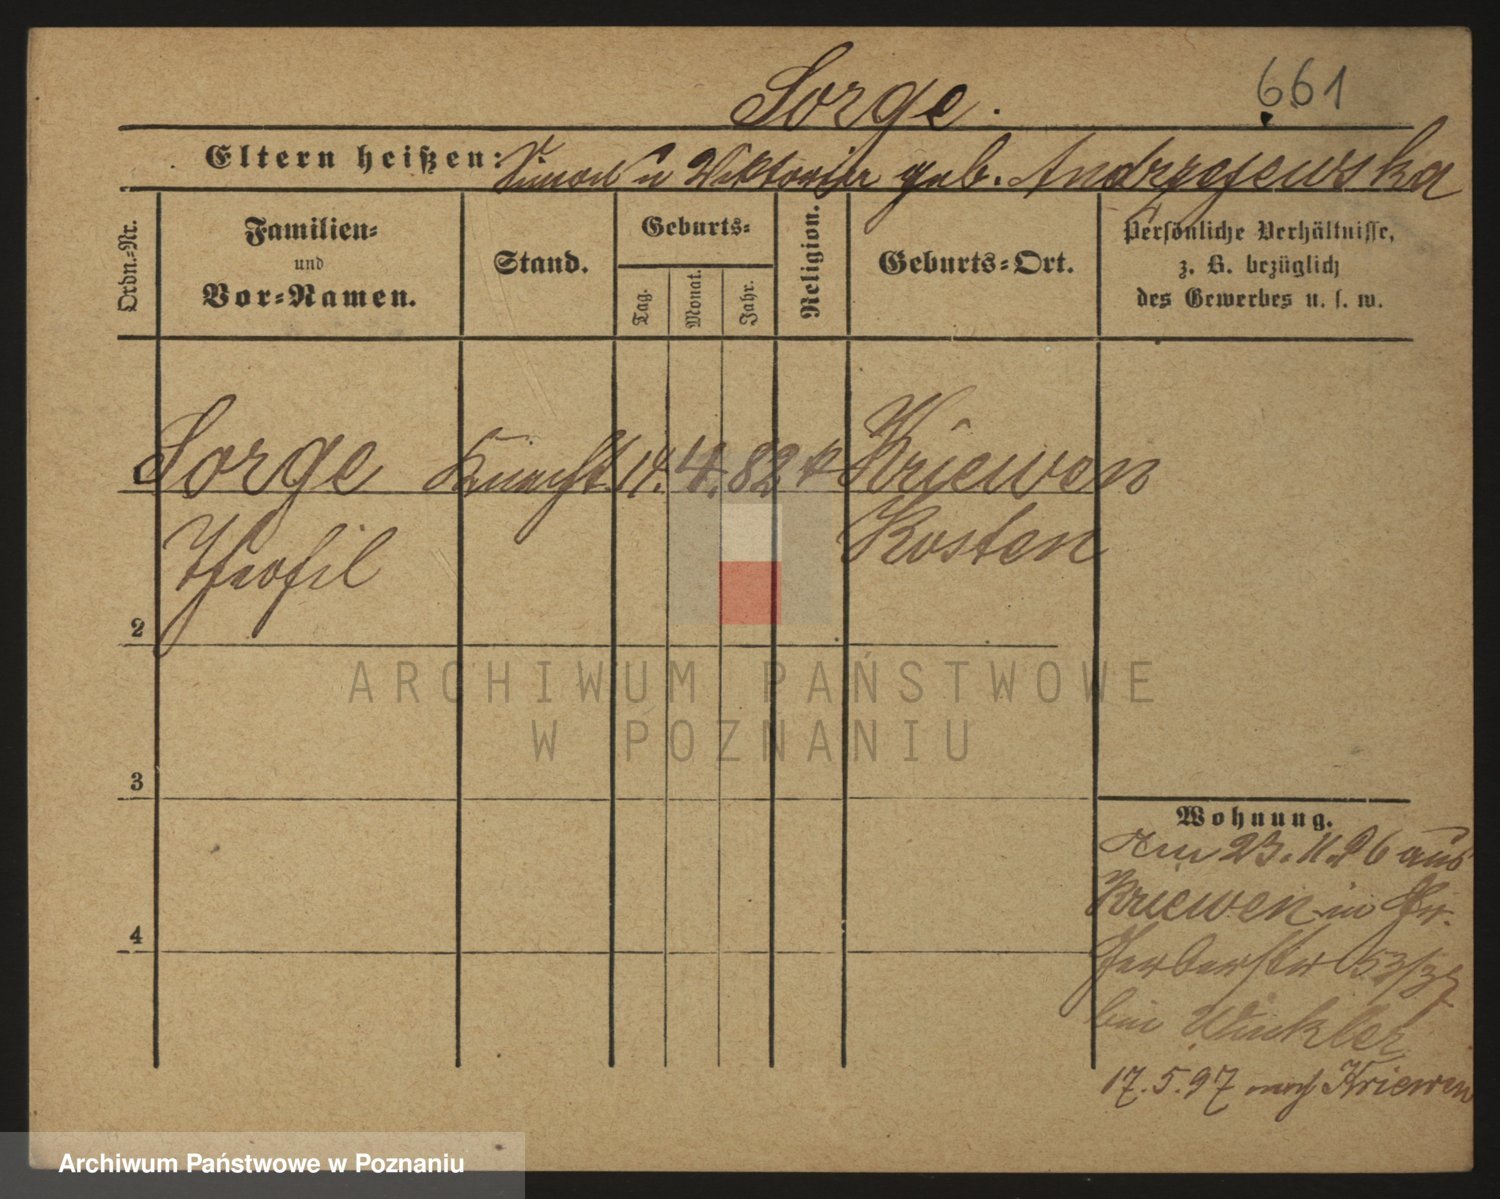 Sorge.
661
Eltern heißen: Simon u Viktoria geb. Andrzejewska
Ordn.-Nr.
Familien-
und
Vor-Namen.
Stand.
Geburts-
Tag.
Monat.
Jahr.
Religion.
Geburts-Ort.
Persönliche Verhältnisse,
z. B. bezüglich
des Gewerbes u. s. w.
Sorge Knecht 14. 4. 82 k Kriewen
Theofil Kosten
2
3
4
Wohnung.
Am 23.11.96 aus
Kriewen in
Gerberstr 53/37
bei Winkler
17.5.97 nach Kriewen
ARCHIWUM PAŃSTWOWE
W POZNANIU
Archiwum Państwowe w Poznaniu